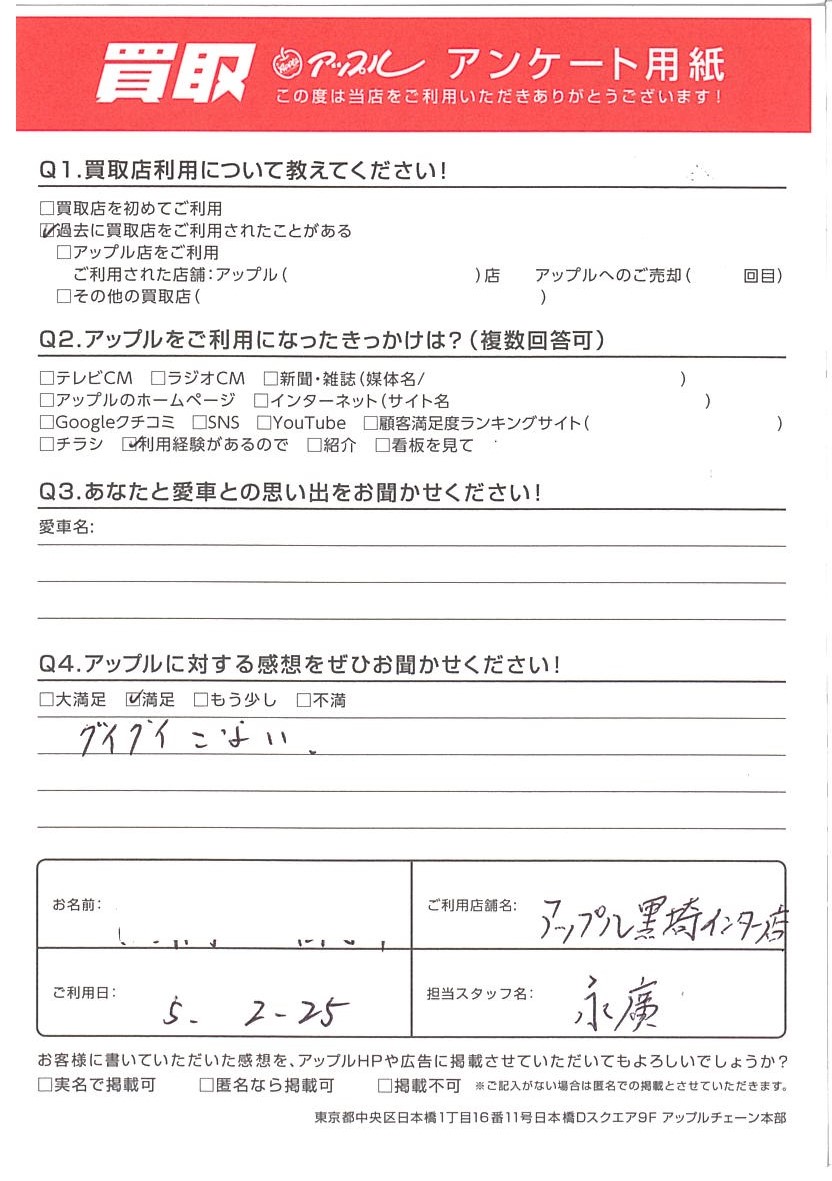 買取 アップル アンケート用紙
この度は当店をご利用いただきありがとうございます!
Q1.買取店利用について教えてください!
□買取店を初めてご利用
☑過去に買取店をご利用されたことがある
□アップル店をご利用
ご利用された店舗:アップル( )店 アップルへのご売却( 回目)
□その他の買取店( )
Q2.アップルをご利用になったきっかけは?(複数回答可)
□テレビCM □ラジオCM □新聞・雑誌(媒体名/ )
□アップルのホームページ □インターネット(サイト名 )
□Googleクチコミ □SNS □YouTube □顧客満足度ランキングサイト( )
□チラシ ☑利用経験があるので □紹介 □看板を見て
Q3.あなたと愛車との思い出をお聞かせください!
愛車名:
Q4.アップルに対する感想をぜひお聞かせください!
□大満足 ☑満足 □もう少し □不満
グイグイこない.
お名前: ご利用店舗名: アップル黒埼インター店
ご利用日: 5. 2-25 担当スタッフ名: 永廣
お客様に書いていただいた感想を、アップルHPや広告に掲載させていただいてもよろしいでしょうか?
□実名で掲載可 □匿名なら掲載可 □掲載不可 ※ご記入がない場合は匿名での掲載とさせていただきます。
東京都中央区日本橋1丁目16番11号日本橋Dスクエア9F アップルチェーン本部